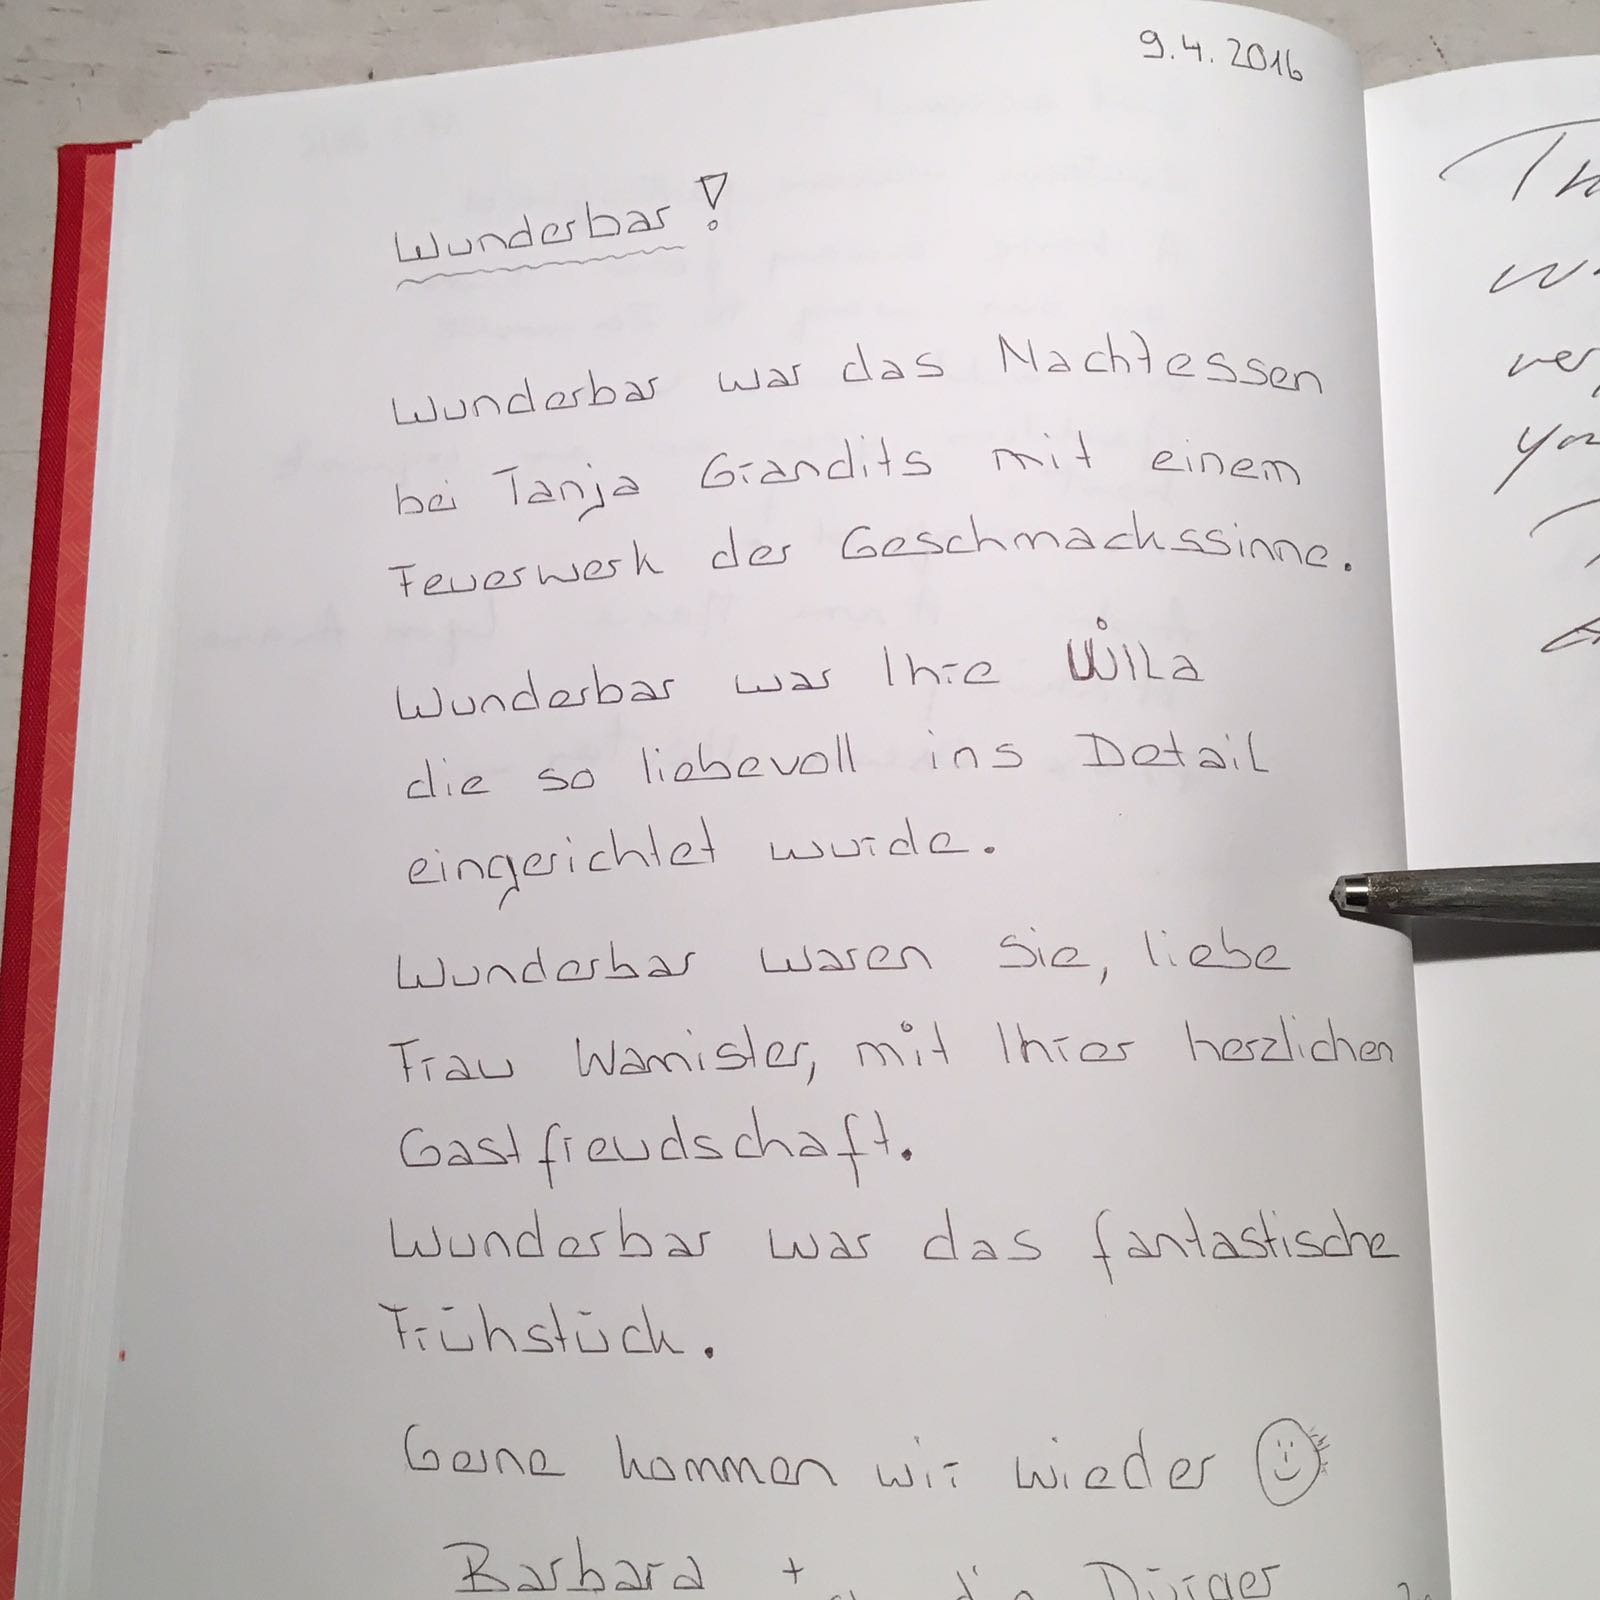 9.4.2016
Wunderbar!
Wunderbar war das Nachtessen
bei Tanja Grandits mit einem
Feuerwerk der Geschmackssinne.
Wunderbar war Ihre WiLLa
die so liebevoll ins Detail
eingerichtet wurde.
Wunderbar waren Sie, liebe
Frau Wamister, mit Ihrer herzlichen
Gastfreudschaft.
Wunderbar war das fantastische
Frühstück.
Gerne kommen wir wieder
Barbara +